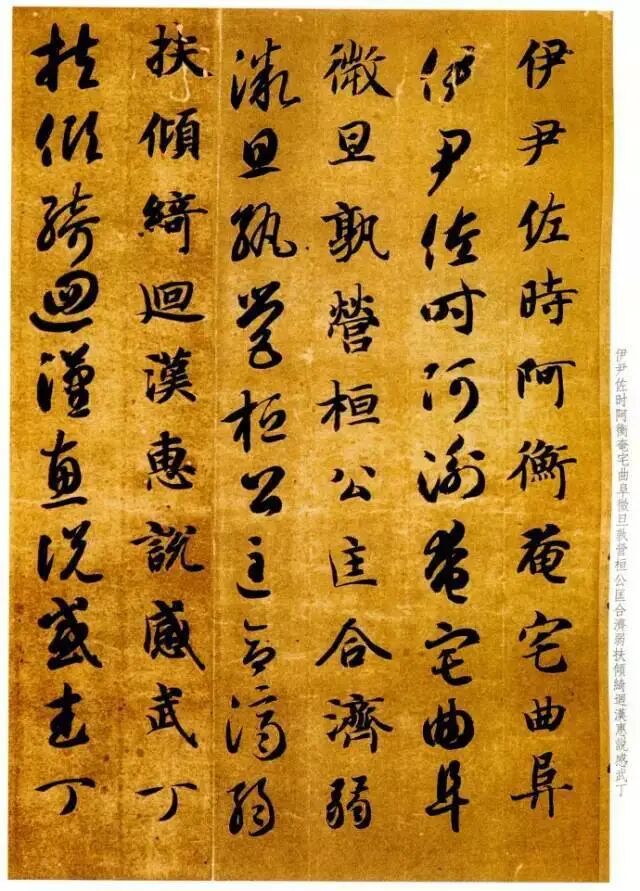 伊尹佐時阿衡奄宅曲阜
伊尹佐時阿衡奄宅曲阜
微旦孰營桓公匡合濟弱
微旦孰營桓公匡合濟弱
扶傾綺迴漢惠說感武丁
扶傾綺迴漢惠說感武丁
伊尹佐时阿衡奄宅曲阜微旦孰营桓公匡合濟弱扶傾綺迴漢惠說感武丁